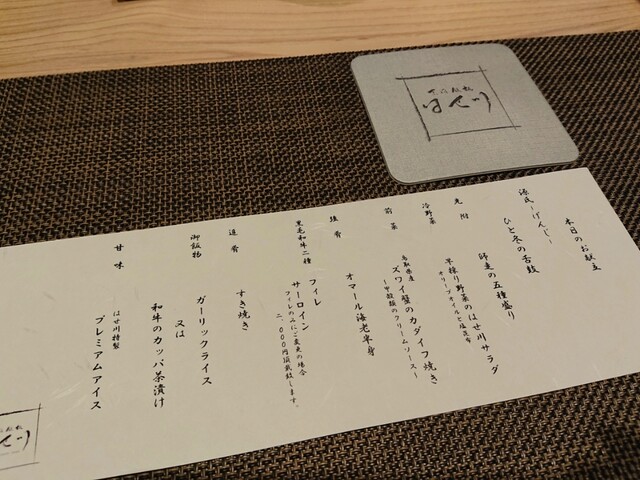 はせ川
本日のお献立
源氏―げんじ―
ひと冬の舌鼓
先附
師走の五種盛り
冷野菜
早採り野菜のはせ川サラダ
オリーブオイルと塩昆布
前菜
鳥取県産
ズワイ蟹のカダイフ焼き
オマール海老半身
黒毛和牛二種
フィレ
サーロイン
フィレのみにご変更の場合
二、〇〇〇円頂戴致します。
追肴
すき焼き
御飯物
ガーリックライス
又は
和牛のカッパ茶漬け
甘味
はせ川特製
プレミアムアイス